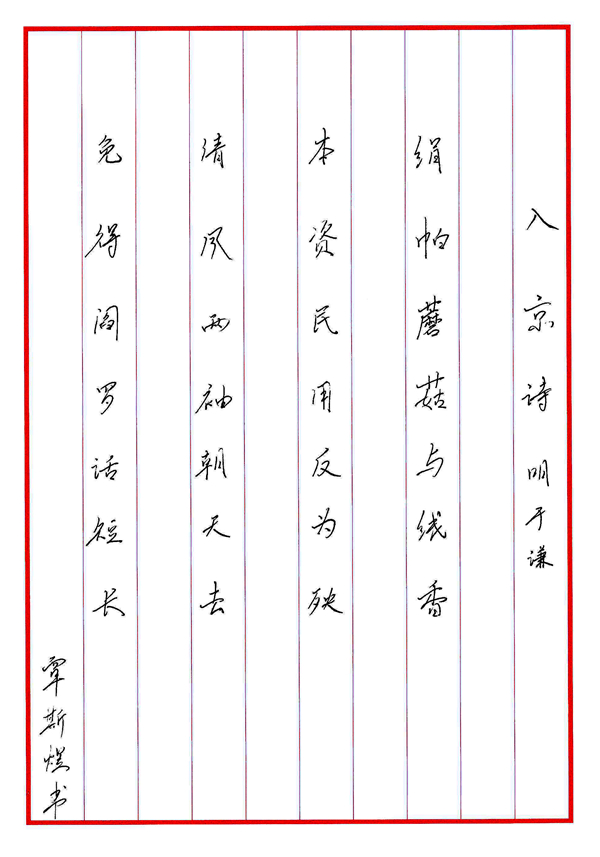 入京诗 明于谦
绢帕蘑菇与线香
本资民用反为殃
清风两袖朝天去
免得阎罗话短长
覃斯煜书